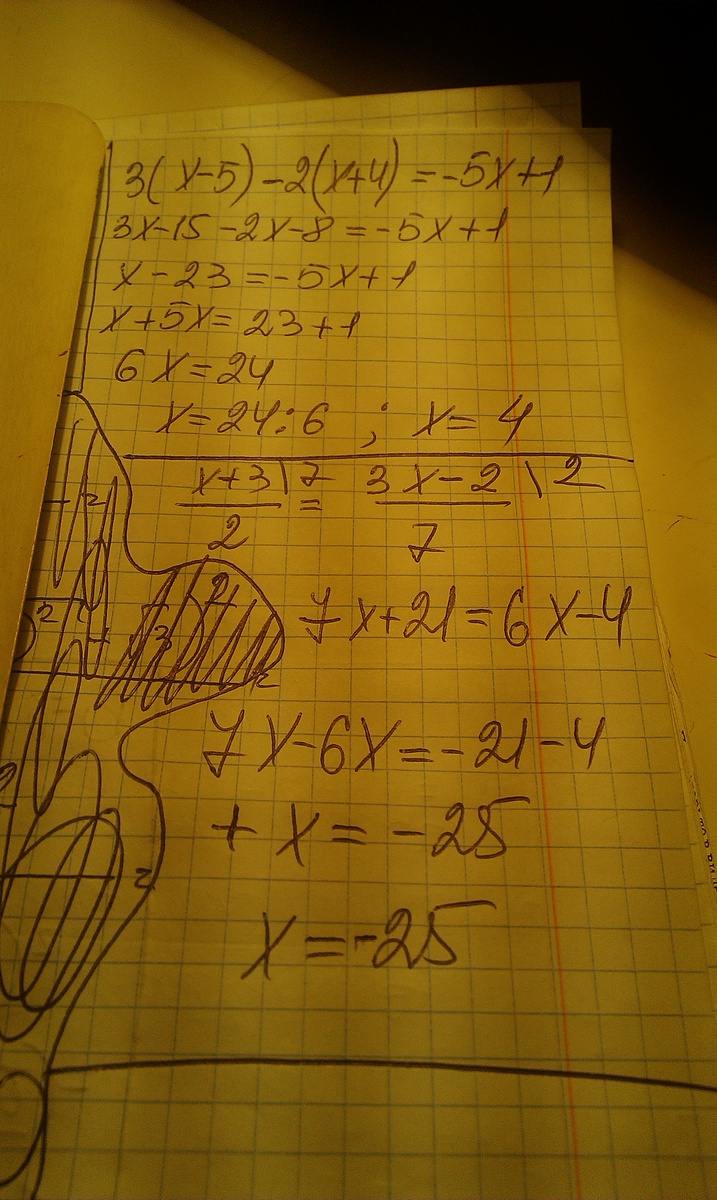 3(x-5)-2(x+4)=-5x+1
3x-15-2x-8=-5x+1
x-23=-5x+1
x+5x=23+1
6x=24
x=24:6 ; x=4
x+3\7 = 3x-2\2
2 7
7x+21=6x-4
7x-6x=-21-4
+x=-25
x=-25